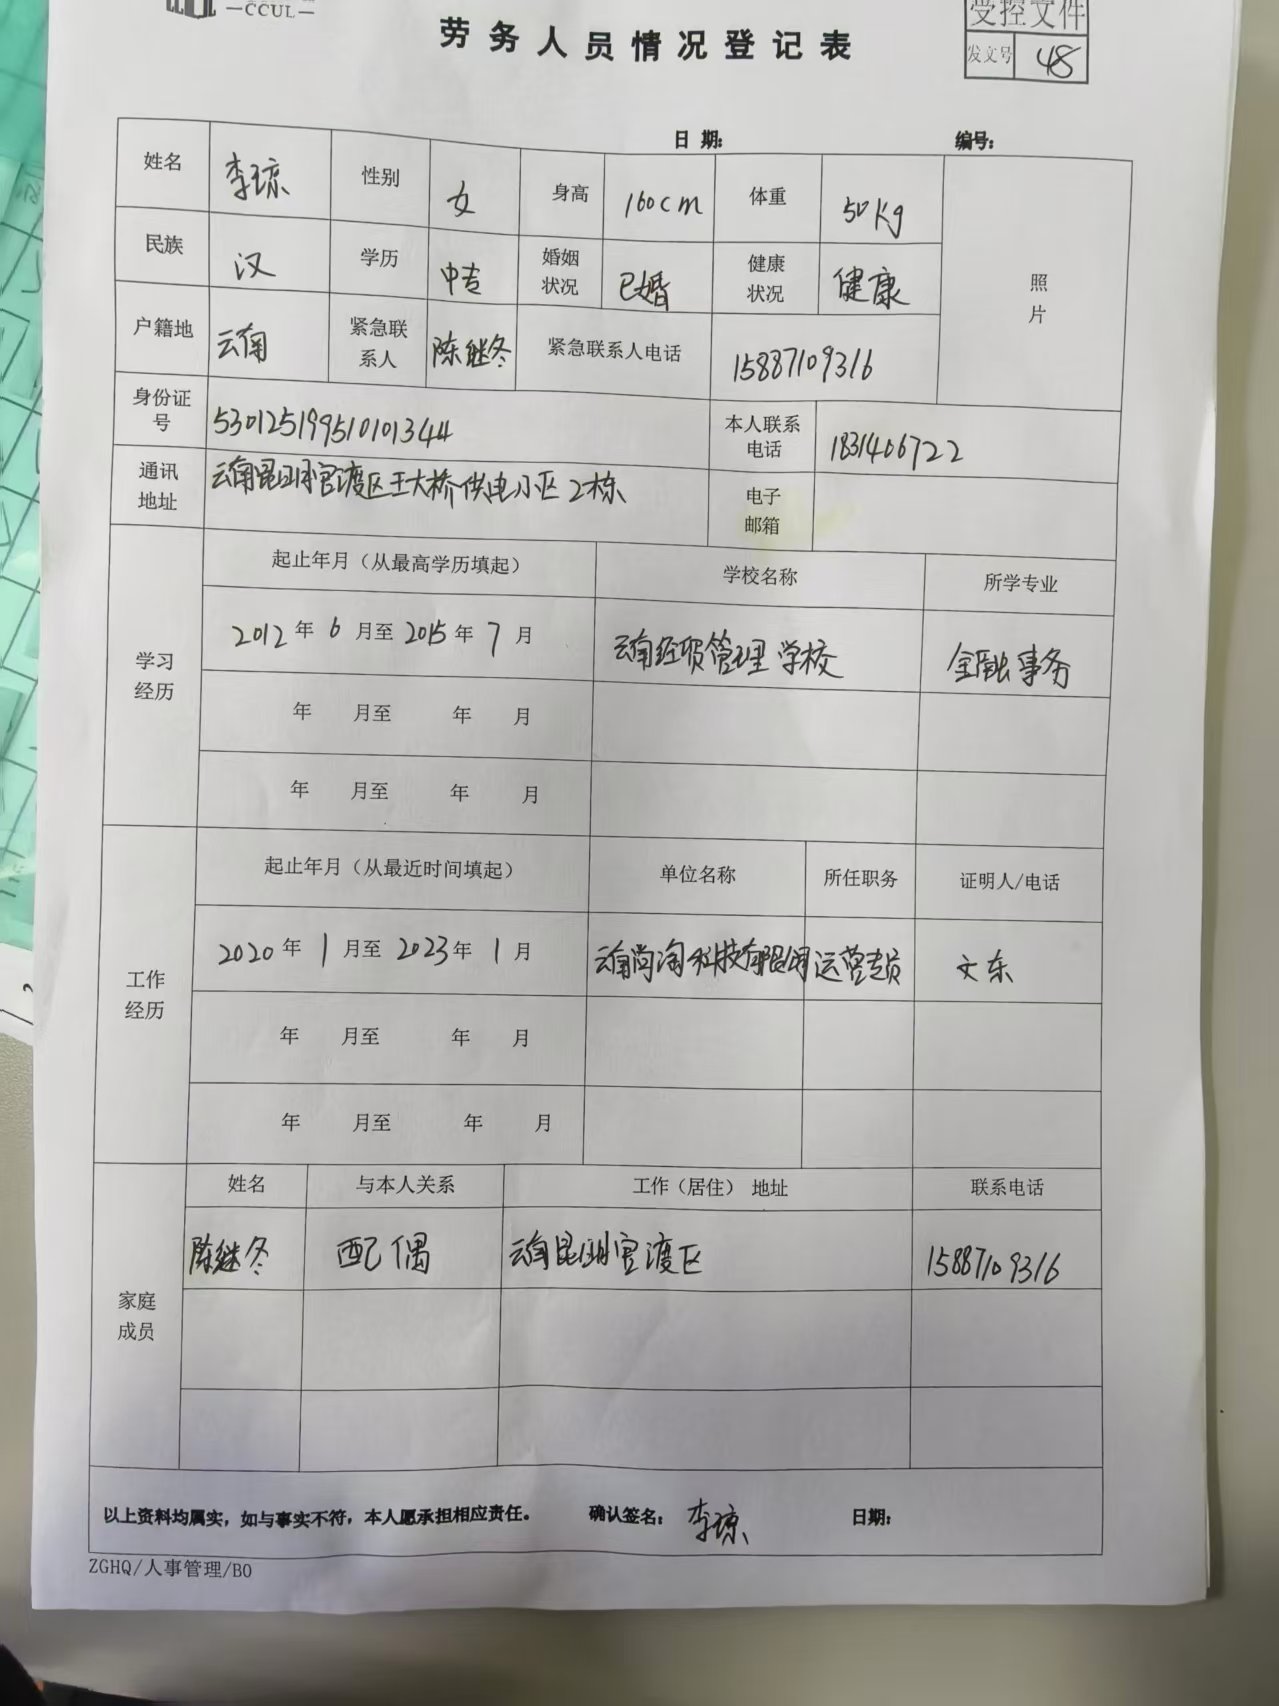 —CCUL—
劳务人员情况登记表
受控文件
发文号 48
日 期: 编号:
姓名 李琼 性别 女 身高 160cm 体重 50kg
照片
民族 汉 学历 中专 婚姻状况 已婚 健康状况 健康
户籍地 云南 紧急联系人 陈继冬 紧急联系人电话 15887109316
身份证号 530125199510101344 本人联系电话 1831406722
通讯地址 云南昆明官渡区王大桥供电小区2栋 电子邮箱
学习经历
起止年月（从最高学历填起） 学校名称 所学专业
2012年6月至2015年7月 云南经贸管理学校 金融事务
年 月至 年 月
年 月至 年 月
工作经历
起止年月（从最近时间填起） 单位名称 所任职务 证明人/电话
2020年1月至2023年1月 云南尚淘科技有限公司 运营专员 文东
年 月至 年 月
年 月至 年 月
家庭成员
姓名 与本人关系 工作（居住）地址 联系电话
陈继冬 配偶 云南昆明官渡区 15887109316
以上资料均属实，如与事实不符，本人愿承担相应责任。 确认签名: 李琼 日期:
ZGHQ/人事管理/B0